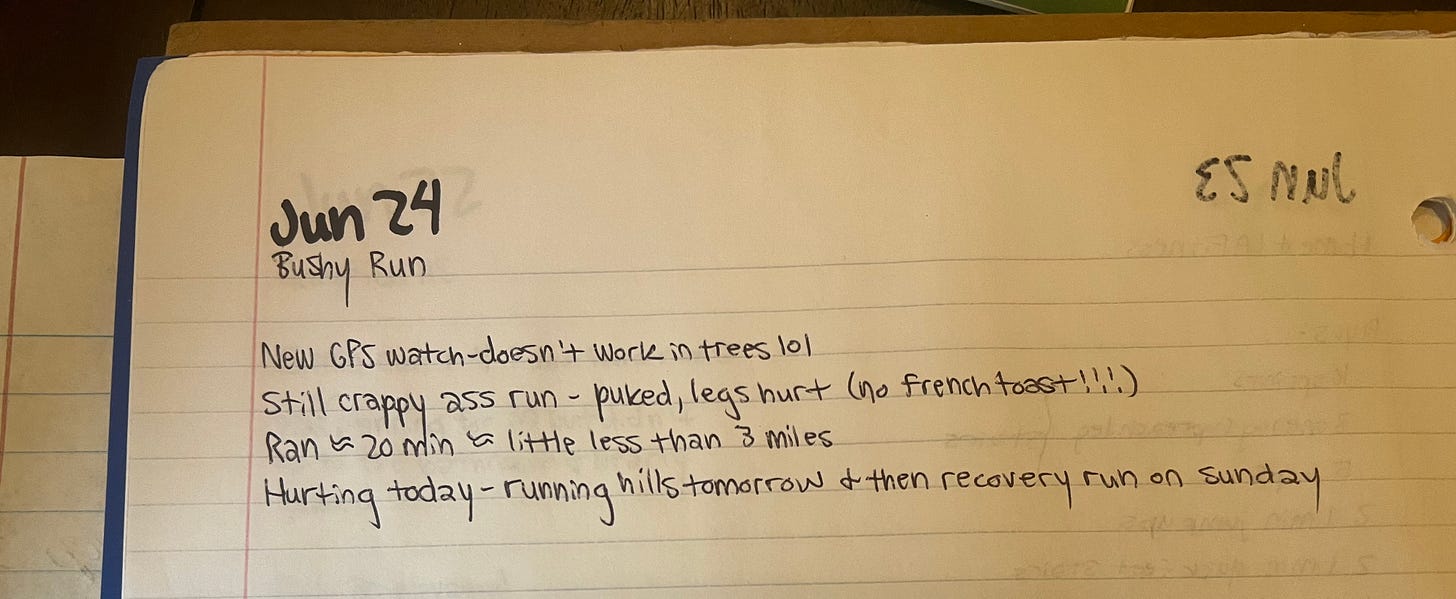 Jun 24
Bushy Run
New GPS watch-doesn't work in trees lol
Still crappy ass run - puked, legs hurt (no french toast!!!!)
Ran ≈ 20 min ≈ little less than 3 miles
Hurting today - running hills tomorrow & then recovery run on Sunday